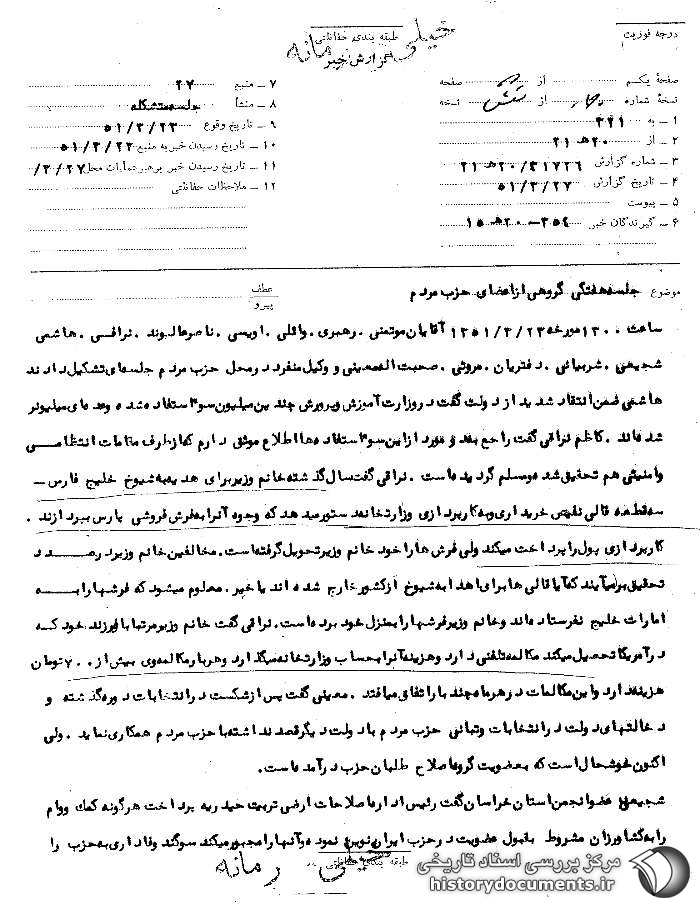 درجه فوریت
طبقه بندی حفاظتی
خیلی محرمانه
گزارش خبر
صفحهٔ یکم از صفحه
نسخهٔ شماره از شش نسخه
۱ ــ به ۳۴۱
۲ ــ از ۲۰هـ ۲۱
۳ ــ شماره گزارش ۲۰/۳۱۷۲۶هـ ۲۱
۴ ــ تاریخ گزارش ۵۱/۳/۲۷
۵ ــ پیوست
۶ ــ گیرندگان خبر
۷ ــ منبع ۲۷
۸ ــ منشأ جلسه متشکله
۹ ــ تاریخ وقوع ۵۱/۳/۲۳
۱۰ ــ تاریخ رسیدن خبر به منبع ۵۱/۳/۲۳
۱۱ ــ تاریخ رسیدن خبر برهبر عملیات محل ۳/۲۷/
۱۲ ــ ملاحظات حفاظتی
موضوع جلسه هفتگی گروهی از اعضای حزب مردم
عطف
پیرو
ساعت ۱۳۰۰ مورخه ۱۳۵۱/۳/۲۳ آقایان موتمنی ، رهبری ، وائلی ، اویسی ، ناصر عالیوند ، نراقی ، هاشمی
شجیعی ، شربیانی ، دفتریان ، مروتی ، صحبت اله معینی و وکیل منفرد در محل حزب مردم جلسه‌ای تشکیل دادند
هاشمی ضمن انتقاد شدید از دولت گفت در وزارت آموزش و پرورش چندین میلیون سو استفاده شده و عده‌ای میلیونر
شده‌اند . کاظم نراقی گفت راجع بعد و مورد از این سو استفاده‌ها اطلاع موثق دارم که از طرف مقامات انتظامی
و امنیتی هم تحقیق شده و مسلم گردیده است . نراقی گفت سال گذشته خانم وزیر برای هدیه به شیوخ خلیج فارس ــ
سه قطعه قالی نفیس خریداری و به کارپردازی وزارتخانه دستور میدهد که وجوه آنرا به فرش فروشی پارس بپردازند .
کارپردازی پول را پرداخت میکند ولی فرش ها را خود خانم وزیر تحویل گرفته است . مخالفین خانم وزیر در صدد
تحقیق بر میآیند که آیا قالی ها برای اهدا به شیوخ از کشور خارج شده اند یا خیر . معلوم میشود که فرشها را به
امارات خلیج نفرستاده‌اند و خانم وزیر فرشها را بمنزل خود برده است . نراقی گفت خانم وزیر مرتبا با فرزند خود که
در آمریکا تحصیل میکند مکالمه تلفنی دارد و هزینه آنرا بحساب وزارتخانه میگذارد و هر بار مکالمه وی بیش از ۷۰۰ تومان
هزینه دارد و این مکالمات در هر ماه چند بار اتفاق میافتد . معینی گفت پس از شکست در انتخابات دوره گذشته و
دخالتهای دولت در انتخابات و تبانی حزب مردم با دولت دیگر قصد نداشته با حزب مردم همکاری نماید . ولی
اکنون خوشحال است که بعضویت گروه اصلاح طلبان حزب در آمده است .
شجیعی عضو انجمن استان خراسان گفت رئیس اداره اصلاحات ارضی تربت حیدریه پرداخت هرگونه کمک و وام
را به کشاورزان مشروط بقبول عضویت در حزب ایران نوین نموده و آنها را مجبور میکند سوگند وفاداری به حزب را
طبقه بندی حفاظتی
خیلی محرمانه
مرکز بررسی اسناد تاریخی
historydocuments.ir